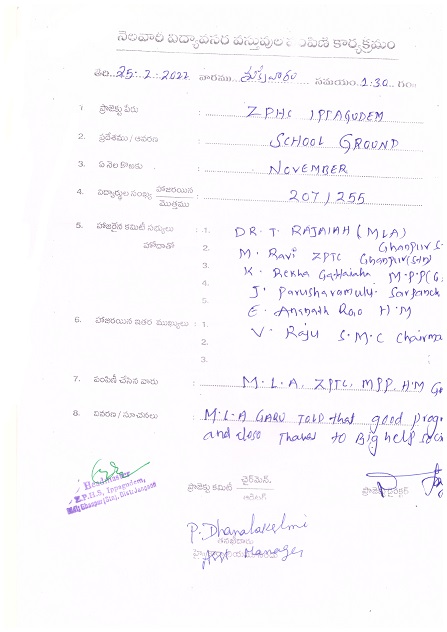 నెలవారీ విద్యావసర వస్తువుల పంపిణీ కార్యక్రమం
తేది..25-2-2022 వారము...శుక్రవారం సమయం..2:30..గం
1. ప్రాజెక్టు పేరు : ZPHS IPPAGUDEM
2. ప్రదేశము / ఆవరణ : SCHOOL GROUND
3. ఏ నెల కొఱకు : NOVEMBER
4. విద్యార్థుల సంఖ్య హాజరయిన / మొత్తము : 207/255
5. హాజరైన కమిటీ సభ్యులు : 1. DR. T. RAJAIAH (MLA)
హోదాతో Ghanpur S
2. M. Ravi ZPTC Ghanpur(Stn)
3. K. Rekha Gattaiah M.P.P(G
4. J. Parusharamulu. Sarpanch
5. E. Amarnath Rao H.M
6. హాజరయిన ఇతర ముఖ్యులు : 1. V. Raju S.M.C Chairma
2.
3.
7. పంపిణీ చేసిన వారు : M.L.A, ZPTC, MPP, H.M
8. వివరణ / సూచనలు : M.L.A GARU TOLD that good prog
and also Thanks to Big help soci
Headmaster
Z.P.H.S. Ippagudem,
Ghanpur (Stn), Dist: Jangaon
ప్రాజెక్టు కమిటీ చైర్మెన్.
ప్రాజెక్టు డైరెక్టర్
P. Dhanalakshmi
Asst Manager